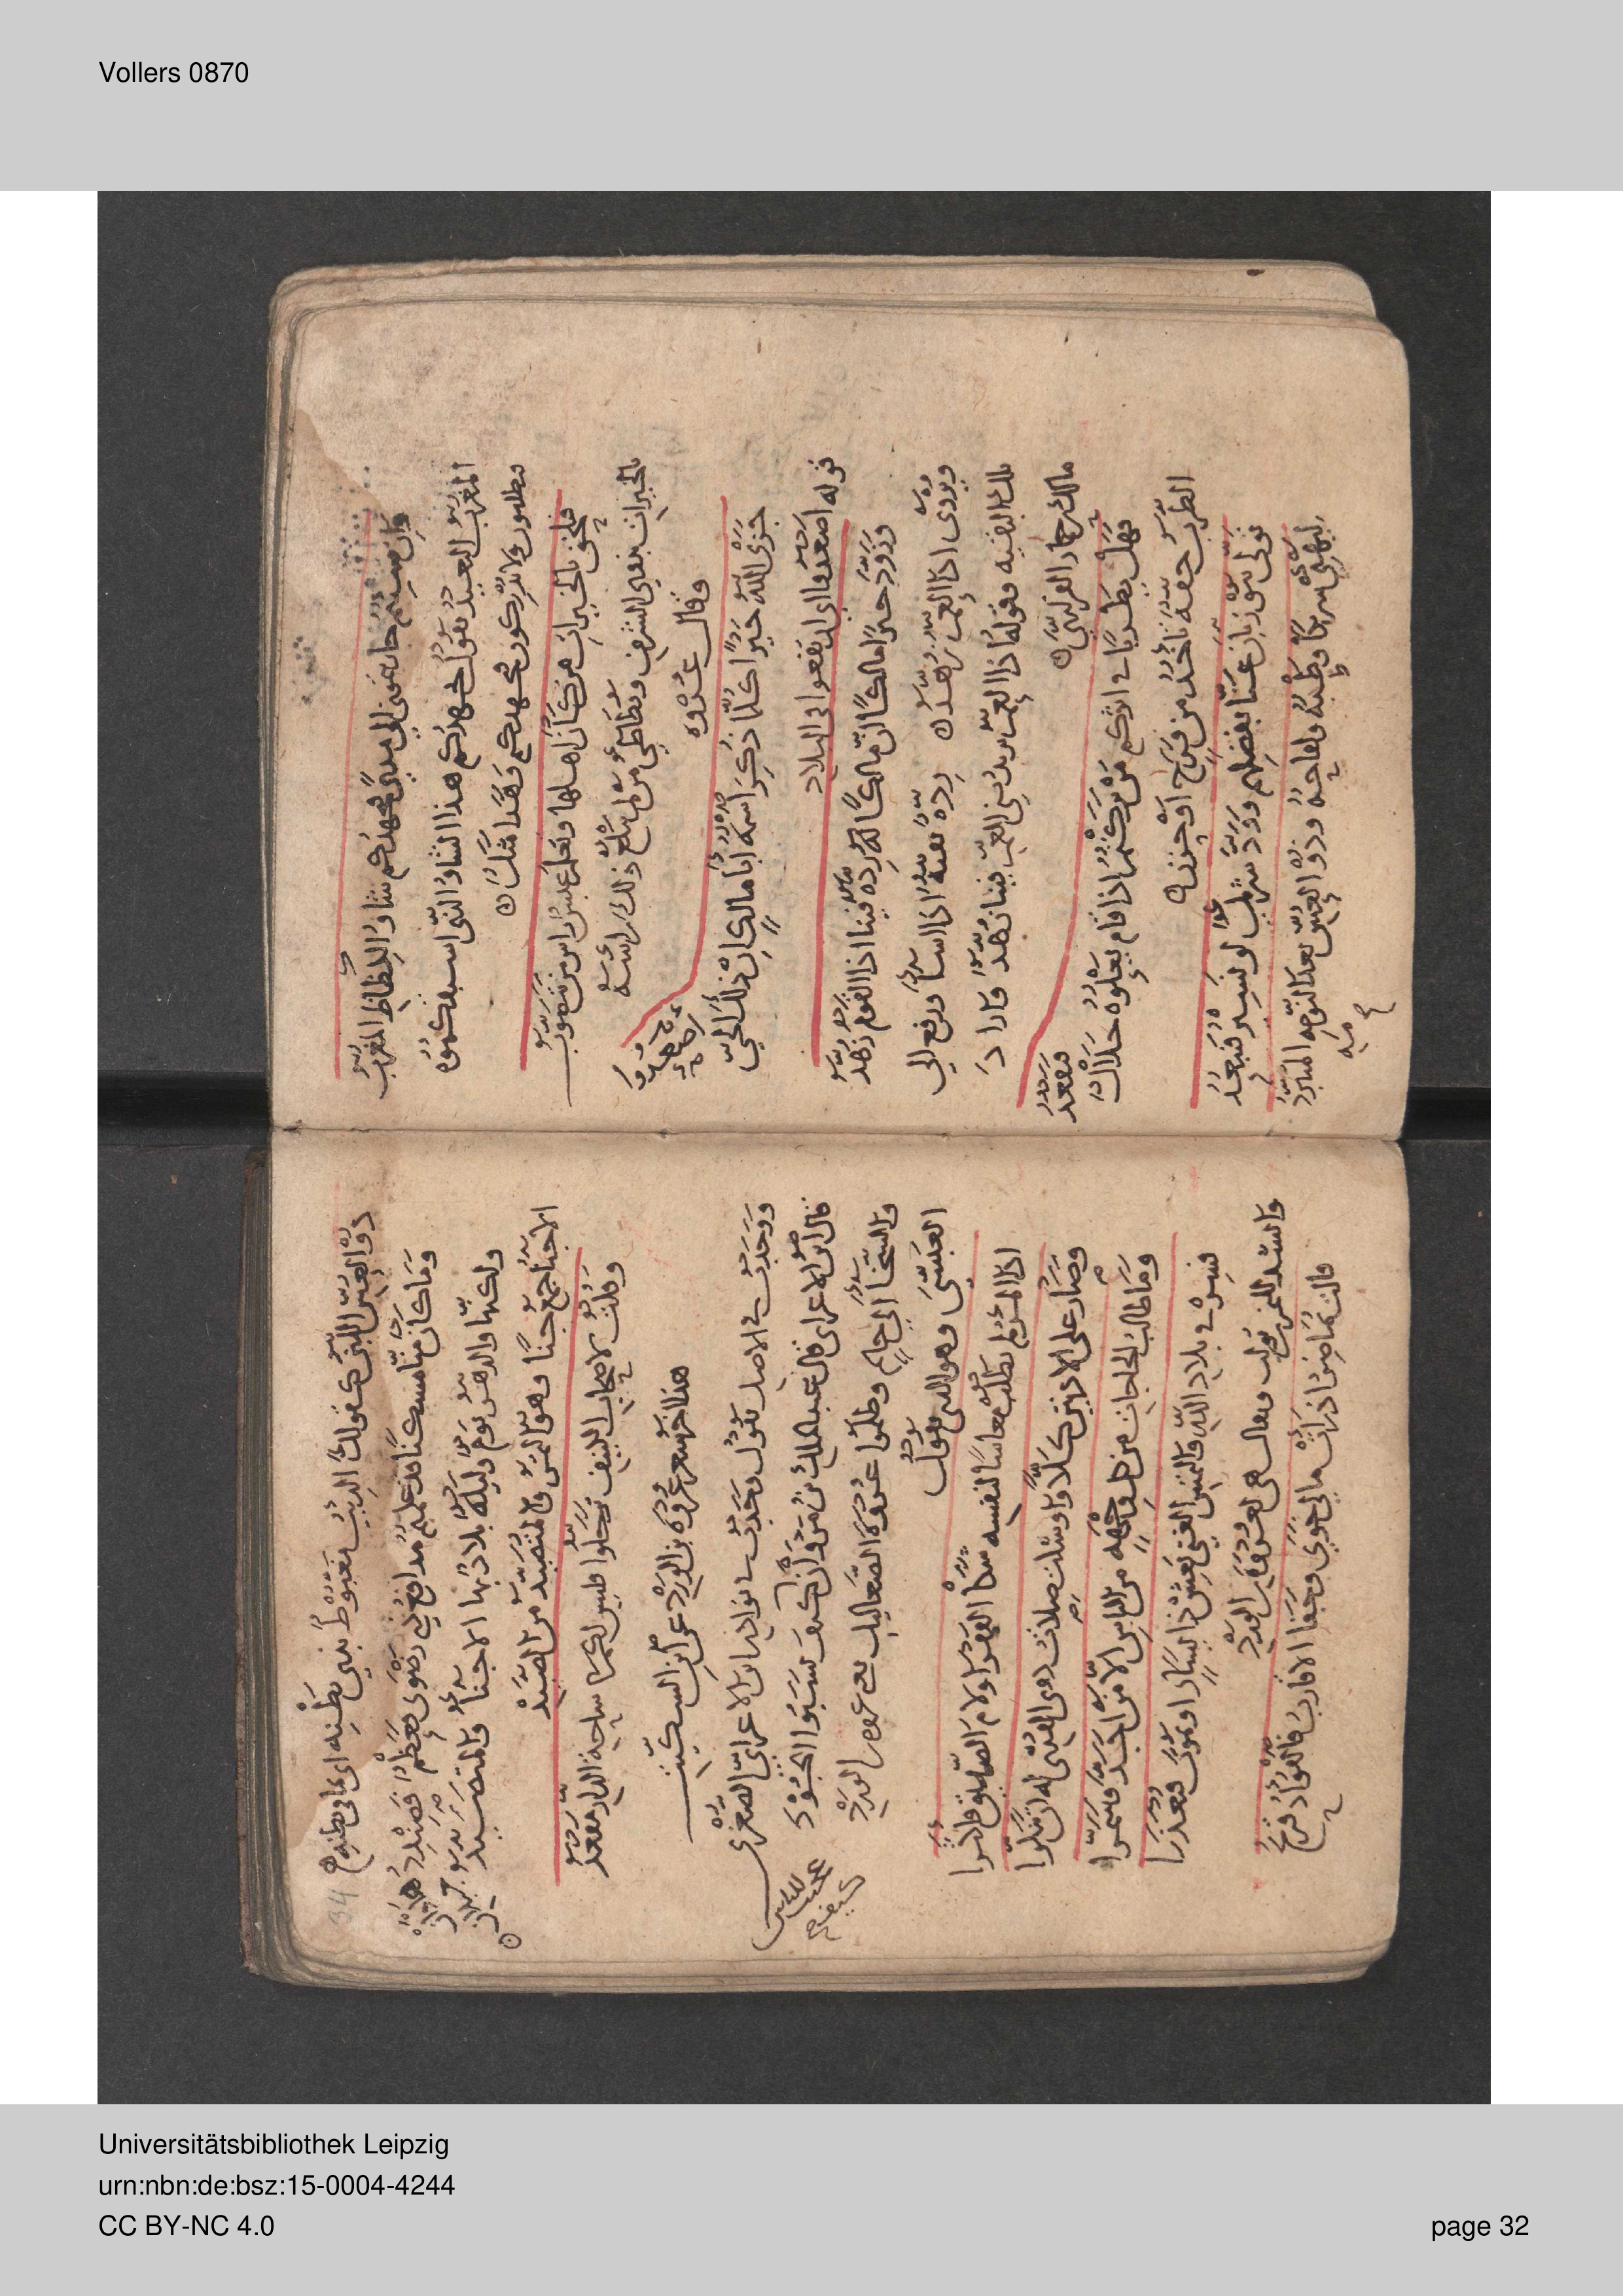 Vollers 0870
المغرب البعيد يقول جهدكم هذا الشاو الذي اسبقتكموه
تطلبون ولا تدركون بجهدكم وهذا مثل
فيلحق بالخيرات من كان اهلها وتعلم عبس راس من يتصوب
بالخيرات يعني الشرف ويطاطي من لم يبلغ ذلك راسه
وقال عروه
جزى الله خيرا كلما ذكر اسمه ابا مالك ان ذلك الحي اصعدوا
قوله اصعدوا اى ارتفعوا في البلاد
وزود خيرا مالكا ان مالكا له رده فينا اذا القوم زهد
ويروى اذا العم زهد رده بقيه اذا اسا رجع الي
تلك البقيه وقوله اذا العم يريد بني العم فينا زهد واراد
مالك بن حمار الفزاري
فهل يطربن في اثركم من تركتم اذا قام يعلوه حلال فيقعد
الطرب خفه تاخذ من فرح او حزن
تولى بنو زبان عنا بفضلهم وود شريك لو نسير فنبعد
ليهنئ شريكا وطبه ولقاحه وذو العس بعد النومه المتبرد
34
ذو العس اللبن كقولك الذيب مغبوط بذي بطنه اي بما في بطنه
وما كان منا مسكنا قد علمتم مدافع ذي رضوى فعظم فصندد
ولكنها والدهر يوم وليله بلاد بها الاجناء والمتصيد
الاجنا جمع جنا وهو الثمر والمتصيد من الصيد
وقلت لاصحاب الكنيف ترحلوا فليس لكم في ساحة الدار مقعد
هذا اخر شعر عروه بن الورد عن ابن السكيت
ووجدت في الاصل يقول وجدت في نوادر ابن الاعرابي الصغرى
قال ابن الاعرابى قال عبد الملك بن مروان كيف نسبوا الجود
والسخا الى حاتم وظلموا عروه الصعاليك يعني عروه بن الورد
العبسي وهو الذي يقول
اذا المرء لم يطلب معاشا لنفسه شكا الفقر او لام الصديق فاكثرا
وصار على الادنين كلا واوشكت صلات ذوى القربى له ان تنكرا
وما طالب الحاجات من كل وجهه من الناس الا من اجد وشمرا
فسر في بلاد الله والتمس الغنى تعش ذا يسار او تموت فتعذرا
وانشد للنمر بن تولب ويقال هى لعروه بن الورد
قالت تماضر اذ رات مالي خوى وجفا الاقارب فالفواد قريح
Universitätsbibliothek Leipzig
urn:nbn:de:bsz:15-0004-4244
CC BY-NC 4.0
page 32